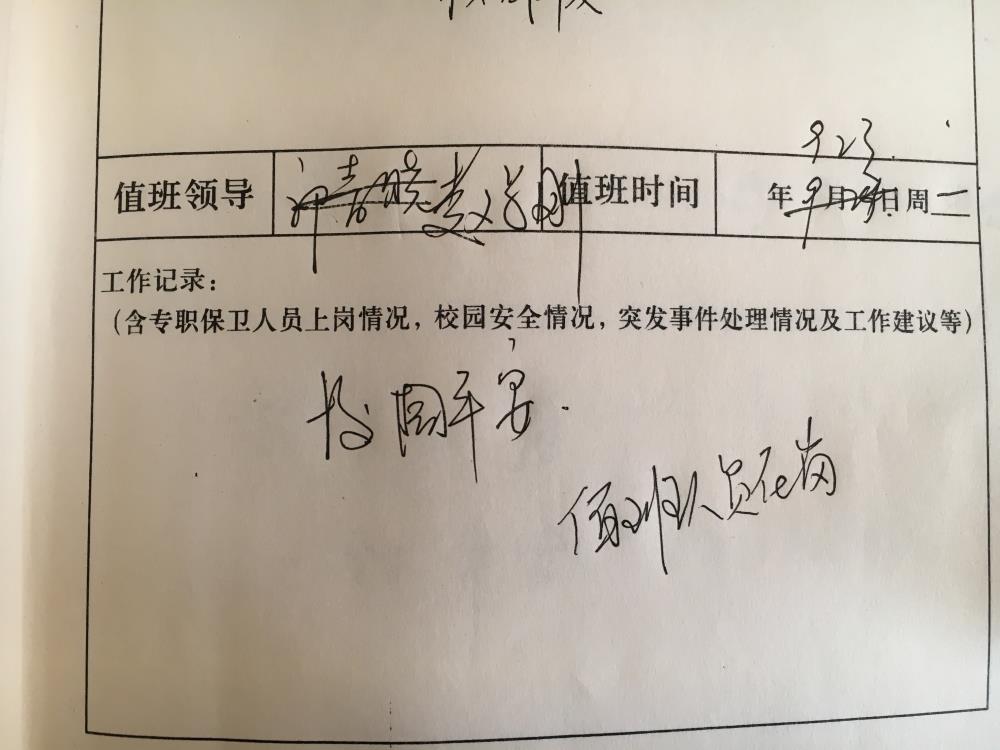 9 23.
值班领导 值班时间 年9月日周二
工作记录：
（含专职保卫人员上岗情况，校园安全情况，突发事件处理情况及工作建议等）
校园平安.
值班人员在岗